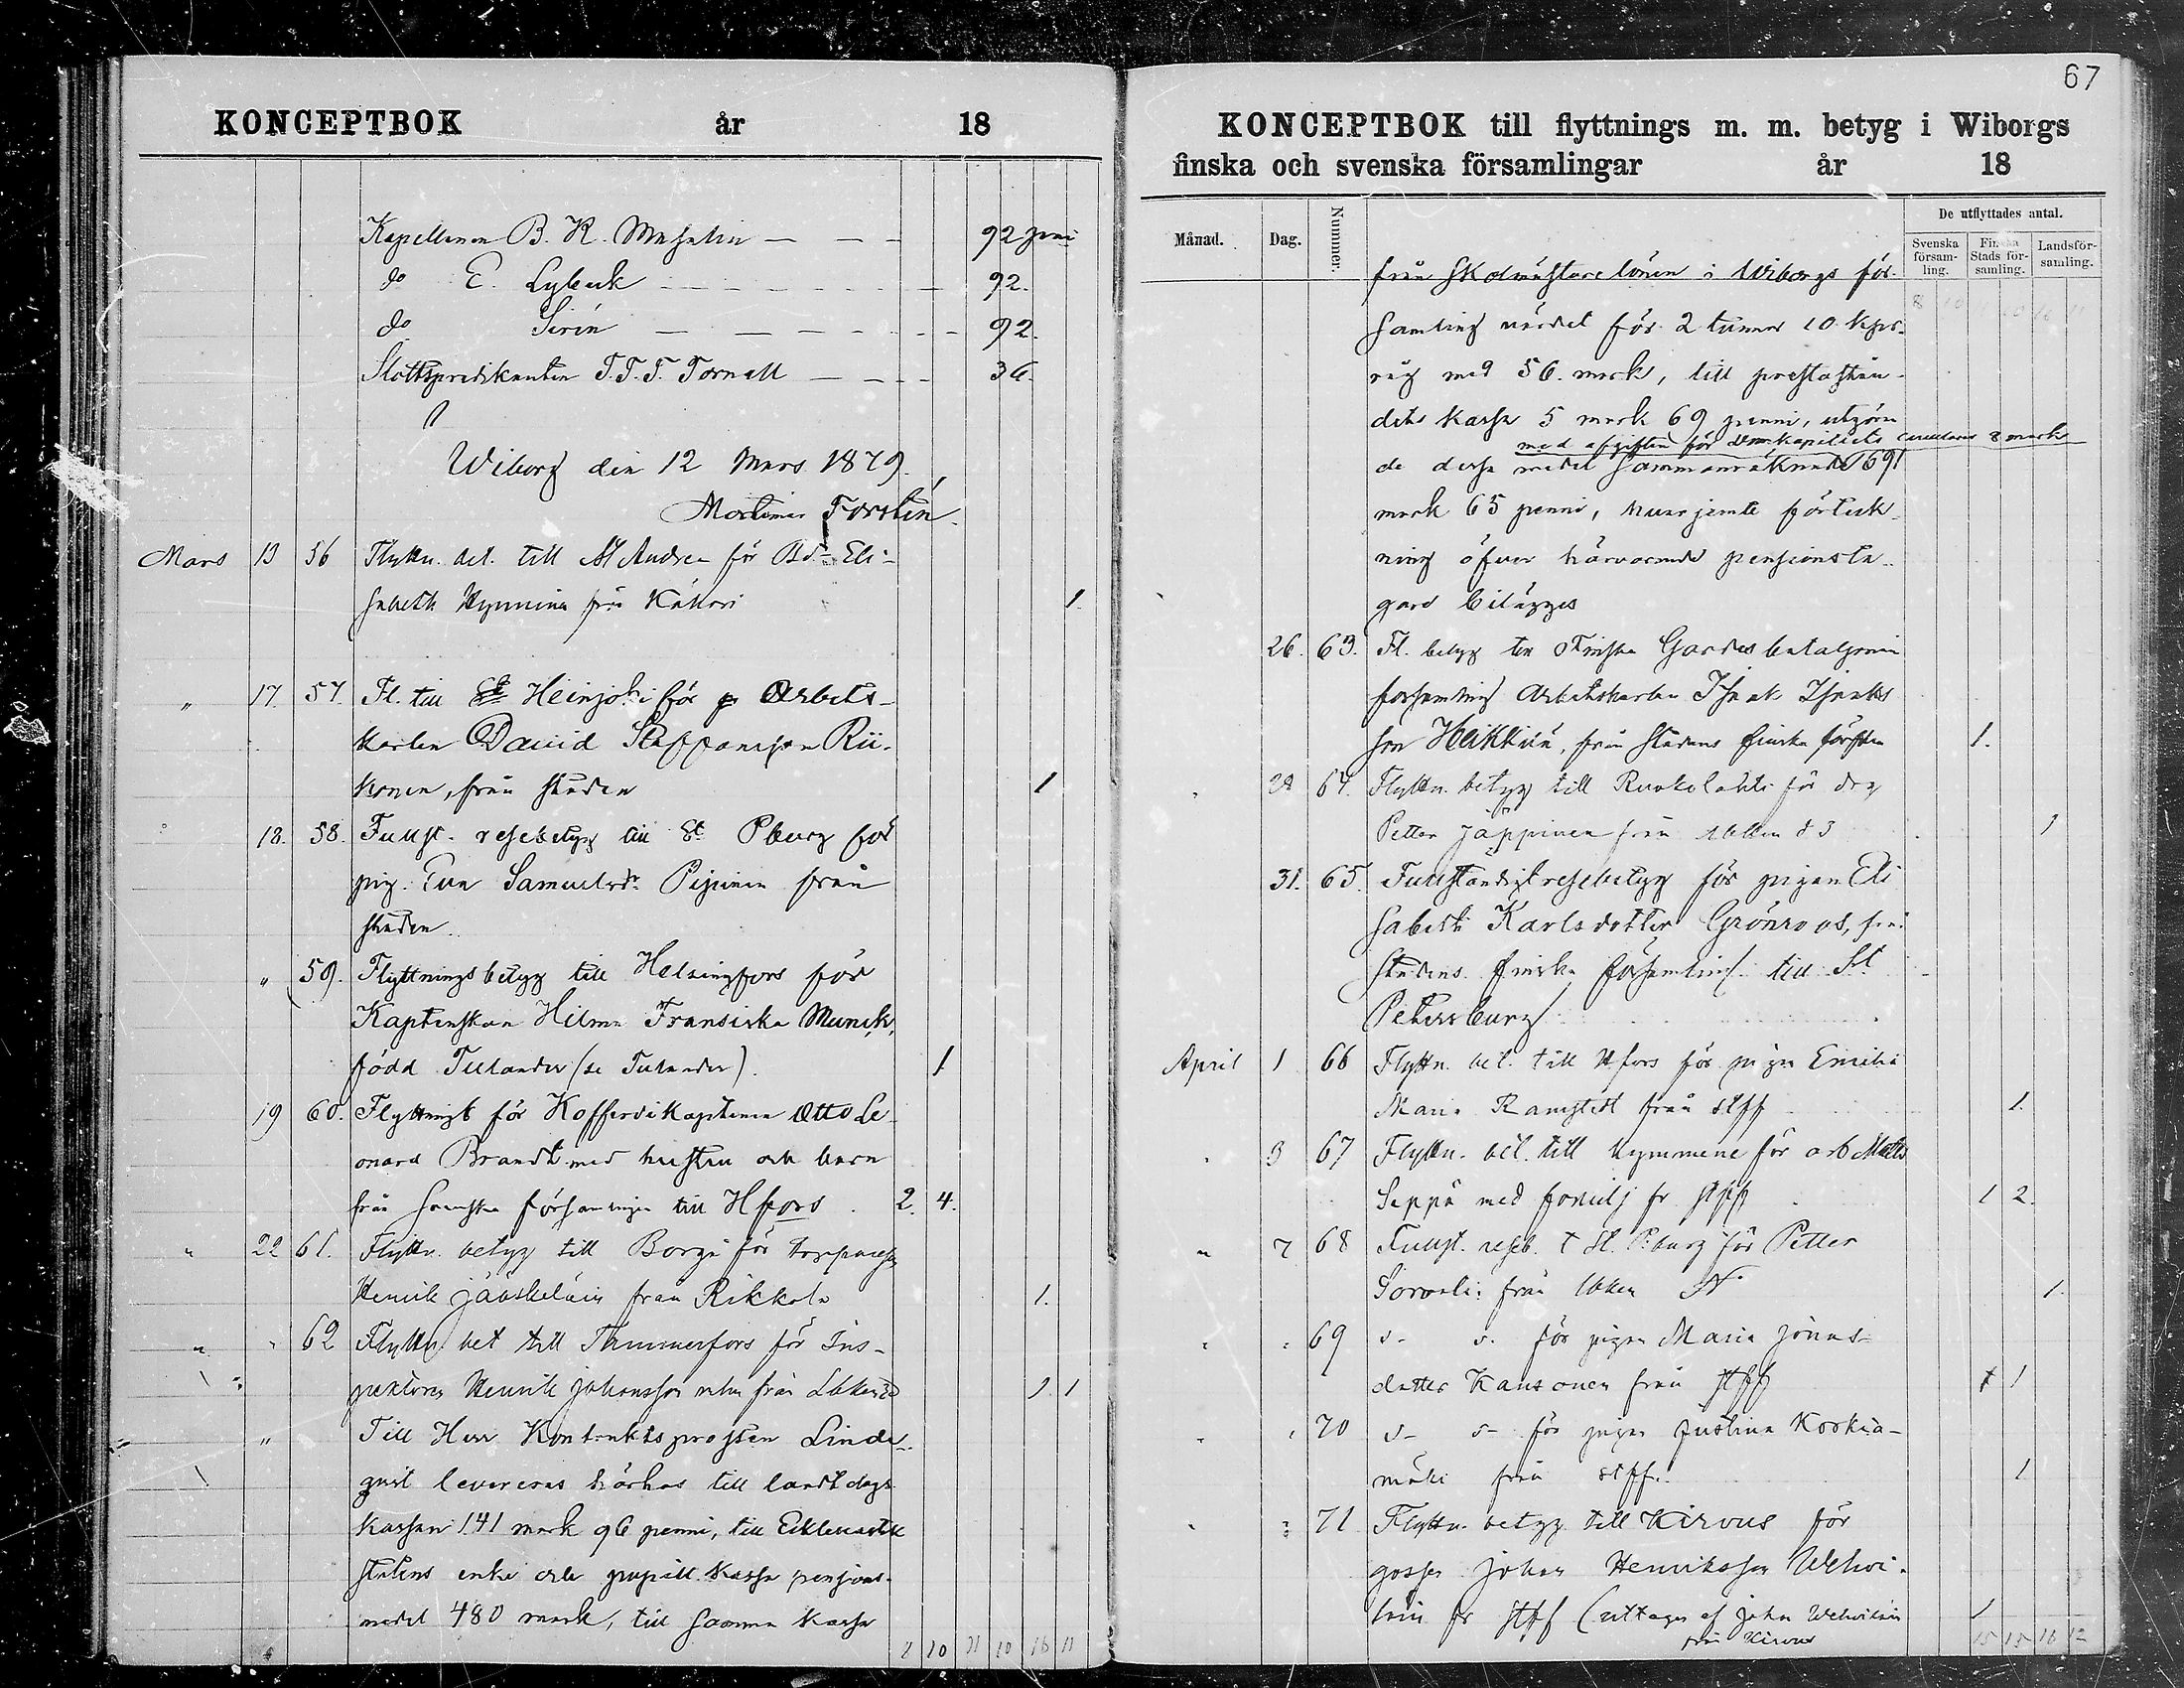 67
KONCEPTBOK år 18
Kapellanen B. K. Masalin — — — 92 penni
do E. Lybeck — — — 92.
do Sirén — — — 92.
Slottspredikanten T. T. T. Tornell — — — 36.
Wiborg den 12 Mars 1879.
Mortimer Forstén
Mars 13 56 Flyttn. bet. till St Andrea för Bd. Eli-
sabeth Kymmine från Kakori 1.
" 17. 57. Fl. till St Heinjoki för p Arbets-
karlen David Staffansson Rii-
konen, från staden 1
18. 58. Fullst. resebetyg till St. Pburg för
pig. Eva Samuelsdr. Pipinen från
staden.
" 59. Flyttningsbetyg till Helsingfors för
Kaptenskan Hilma Fransiska Munck,
född Tulander (se Tulander). 1
19 60. Flyttningsb för Kofferdikaptenen Otto Le-
onard Brandt med hustru och barn
från Svenska församlingen till Hfors. 2. 4.
" 22 61. Flyttn. betyg till Borgå för
Henrik Jääskeläin från Rikkola 1.
" " 62 Flyttn. bet till Tammerfors för Ins-
pektoren Henrik Johansson från 1 1
" Till Herr Kontraktsprosten Linde-
qvist levereras härhos till landtdags
kassan 141 mark 96 penni, till Ecklesiastik
statens enke och pupill kassa pensions-
medel 480 mark, till samma kassa
2 10 11 10 16 11
KONCEPTBOK till flyttnings m. m. betyg i Wiborgs
finska och svenska församlingar år 18
Månad. Dag. Nummer. De utflyttades antal.
Svenska försam-ling. Finska Stads för-samling. Landsför-samling.
från Skolmästare lönen i Wiborgs för-
samling värdet för 2 tunnor 10 kpr.
råg med 56. mark, till prestastån-
dets kassa 5 mark 69 penni, utgöran
med afgiften för Domkapitlets cirkulärer 8 mark
de dessa medel sammanräknade 691
mark 65 penni, hvarjemte förteck-
ning öfver härvarande pensionsta-
gare bilägges
26. 63. Fl. betyg till Finska Gardesbataljonens
församling Arbetskarlen Isak Isaks
son Heikkinen, från Stadens finska försam 1.
28 64. Flyttn. betyg till Ruokolahti för drg
Petter Jäppinen från 1
31. 65. Fullständigt resebetyg för pigan Eli
sabeth Karlsdotter Grönroos, från
stadens finska församling till St
Petersburg
April 1 66 Flyttn. bet. till Hfors för pigan Emilia
Maria Ramstedt från stff 1.
" 3 67 Flyttn. bet. till Kymmene för arb Matts
Seppä med familj fr stff 1 2.
" 7 68 Fullst. reseb. t St. Pburg för Petter
Sorvali från 1.
" " 69 d- d- för pigan Maria Jönas-
dotter Kansonen från stff 1
" " 70 d- d- för pigan Justina Koskia-
mäki från stff. 1
" " 71 Flyttn. betyg till Kirvus för
gossen Johan Henriksson Wehvi-
läin fr stff (uttages af Johan Wehviläin 1
från Kirvus
15 15 16 12